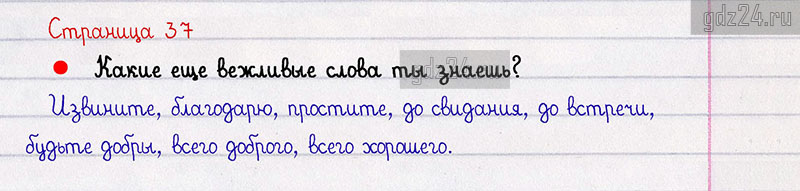 gdz24.ru
Страница 37
Какие еще вежливые слова ты знаешь?
gdz24.ru
Извините, благодарю, простите, до свидания, до встречи,
будьте добры, всего доброго, всего хорошего.